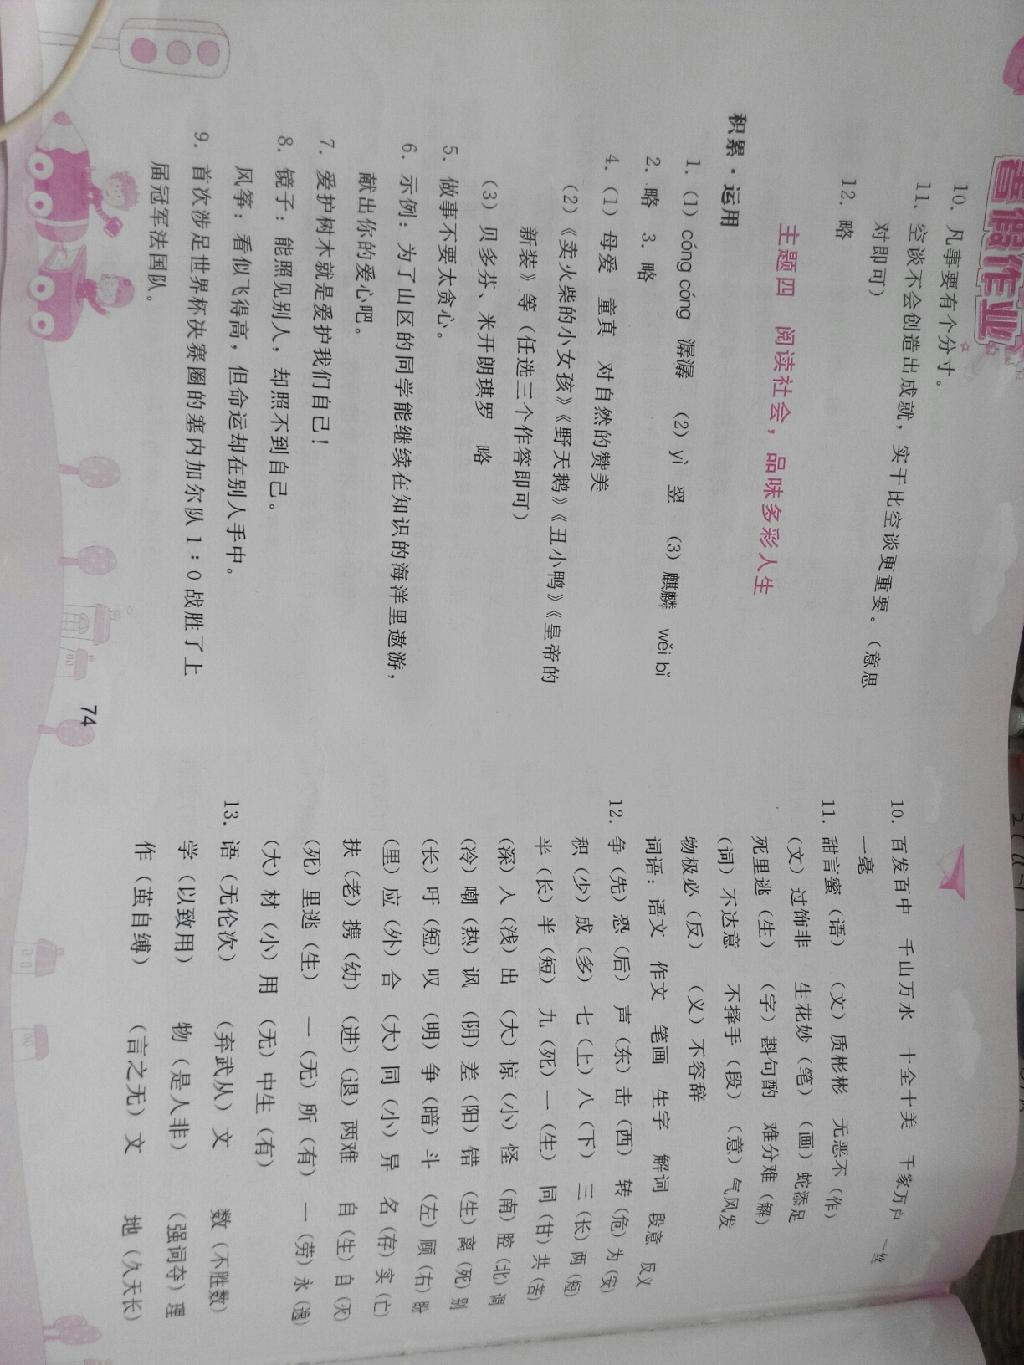 暑假作业
10. 凡事要有个分寸。
11. 空谈不会创造出成就，实干比空谈更重要。（意思
对即可）
12. 略
主题四 阅读社会，品味多彩人生
积累·运用
1. （1）cóng cóng 潺潺 （2）yì 翌 （3）麒麟 wěi bǐ
2. 略 3. 略
4. （1）母爱 童真 对自然的赞美
（2）《卖火柴的小女孩》《野天鹅》《丑小鸭》《皇帝的
新装》等（任选三个作答即可）
（3）贝多芬、米开朗琪罗 略
5. 做事不要太贪心。
6. 示例：为了山区的同学能继续在知识的海洋里遨游，
献出你的爱心吧。
7. 爱护树木就是爱护我们自己！
8. 镜子：能照见别人，却照不到自己。
风筝：看似飞得高，但命运却在别人手中。
9. 首次涉足世界杯决赛圈的塞内加尔队1∶0战胜了上
届冠军法国队。
74
10. 百发百中 千山万水 十全十美 千家万户 一丝
一毫
11. 甜言蜜（语） （文）质彬彬 无恶不（作）
（文）过饰非 生花妙（笔） （画）蛇添足
死里逃（生） （字）斟句酌 难分难（解）
（词）不达意 不择手（段） （意）气风发
物极必（反） （义）不容辞
词语：语文 作文 笔画 生字 解词 段意 反义
12. 争（先）恐（后） 声（东）击（西） 转（危）为（安）
积（少）成（多） 七（上）八（下） 三（长）两（短）
半（长）半（短） 九（死）一（生） 同（甘）共（苦）
（深）入（浅）出 （大）惊（小）怪 （南）腔（北）调
（冷）嘲（热）讽 （阴）差（阳）错 （生）离（死）别
（长）吁（短）叹 （明）争（暗）斗 （左）顾（右）盼
（里）应（外）合 （大）同（小）异 名（存）实（亡）
扶（老）携（幼） （进）（退）两难 自（生）自（灭）
（死）里逃（生） 一（无）所（有） 一（劳）永（逸）
（大）材（小）用 （无）中生（有）
13. 语（无伦次） （弃武从）文 数（不胜数）
学（以致用） 物（是人非） （强词夺）理
作（茧自缚） （言之无）文 地（久天长）